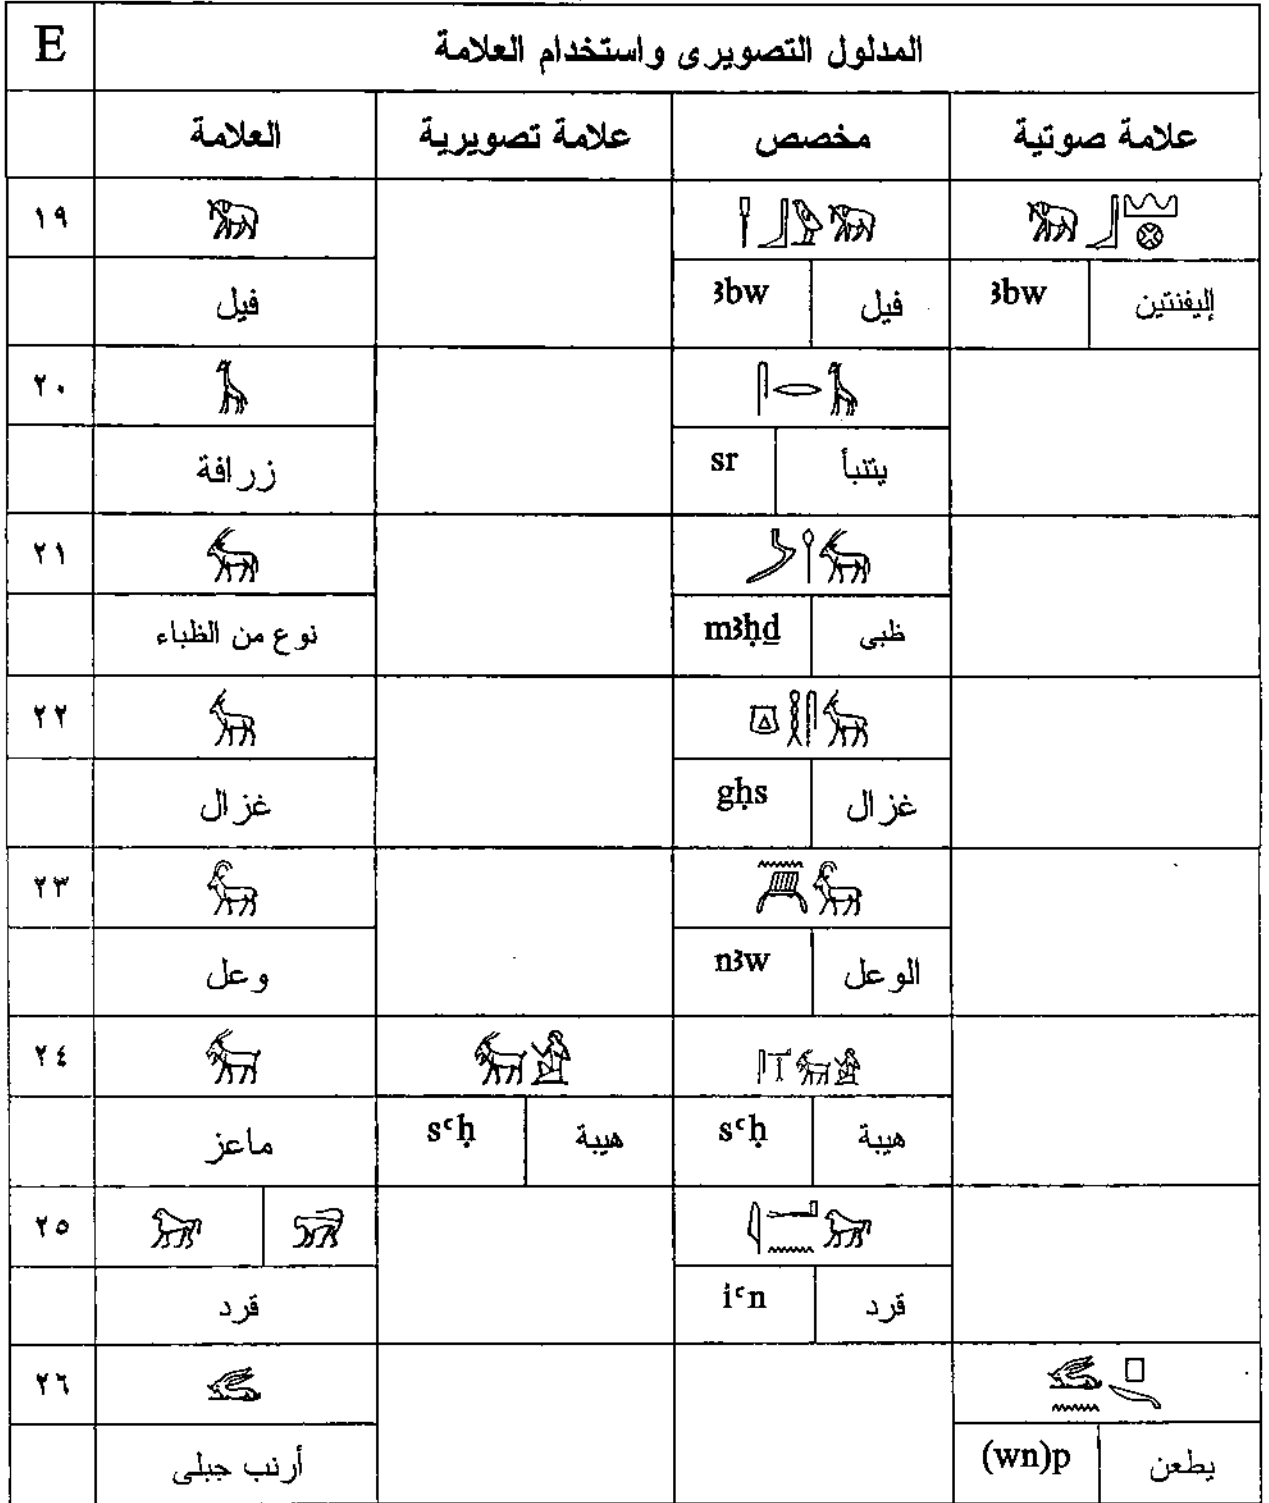 E المدلول التصويرى واستخدام العلامة
العلامة علامة تصويرية مخصص علامة صوتية
١٩
فيل ꜣbw فيل ꜣbw إليفنتين
٢٠
زرافة sr يتنبأ
٢١
نوع من الظباء mꜣḥḏ ظبى
٢٢
غزال gḥs غزال
٢٣
وعل nꜣw الوعل
٢٤
ماعز sꜥḥ هيبة sꜥḥ هيبة
٢٥
قرد iꜥn قرد
٢٦
أرنب جبلى (wn)p يطعن